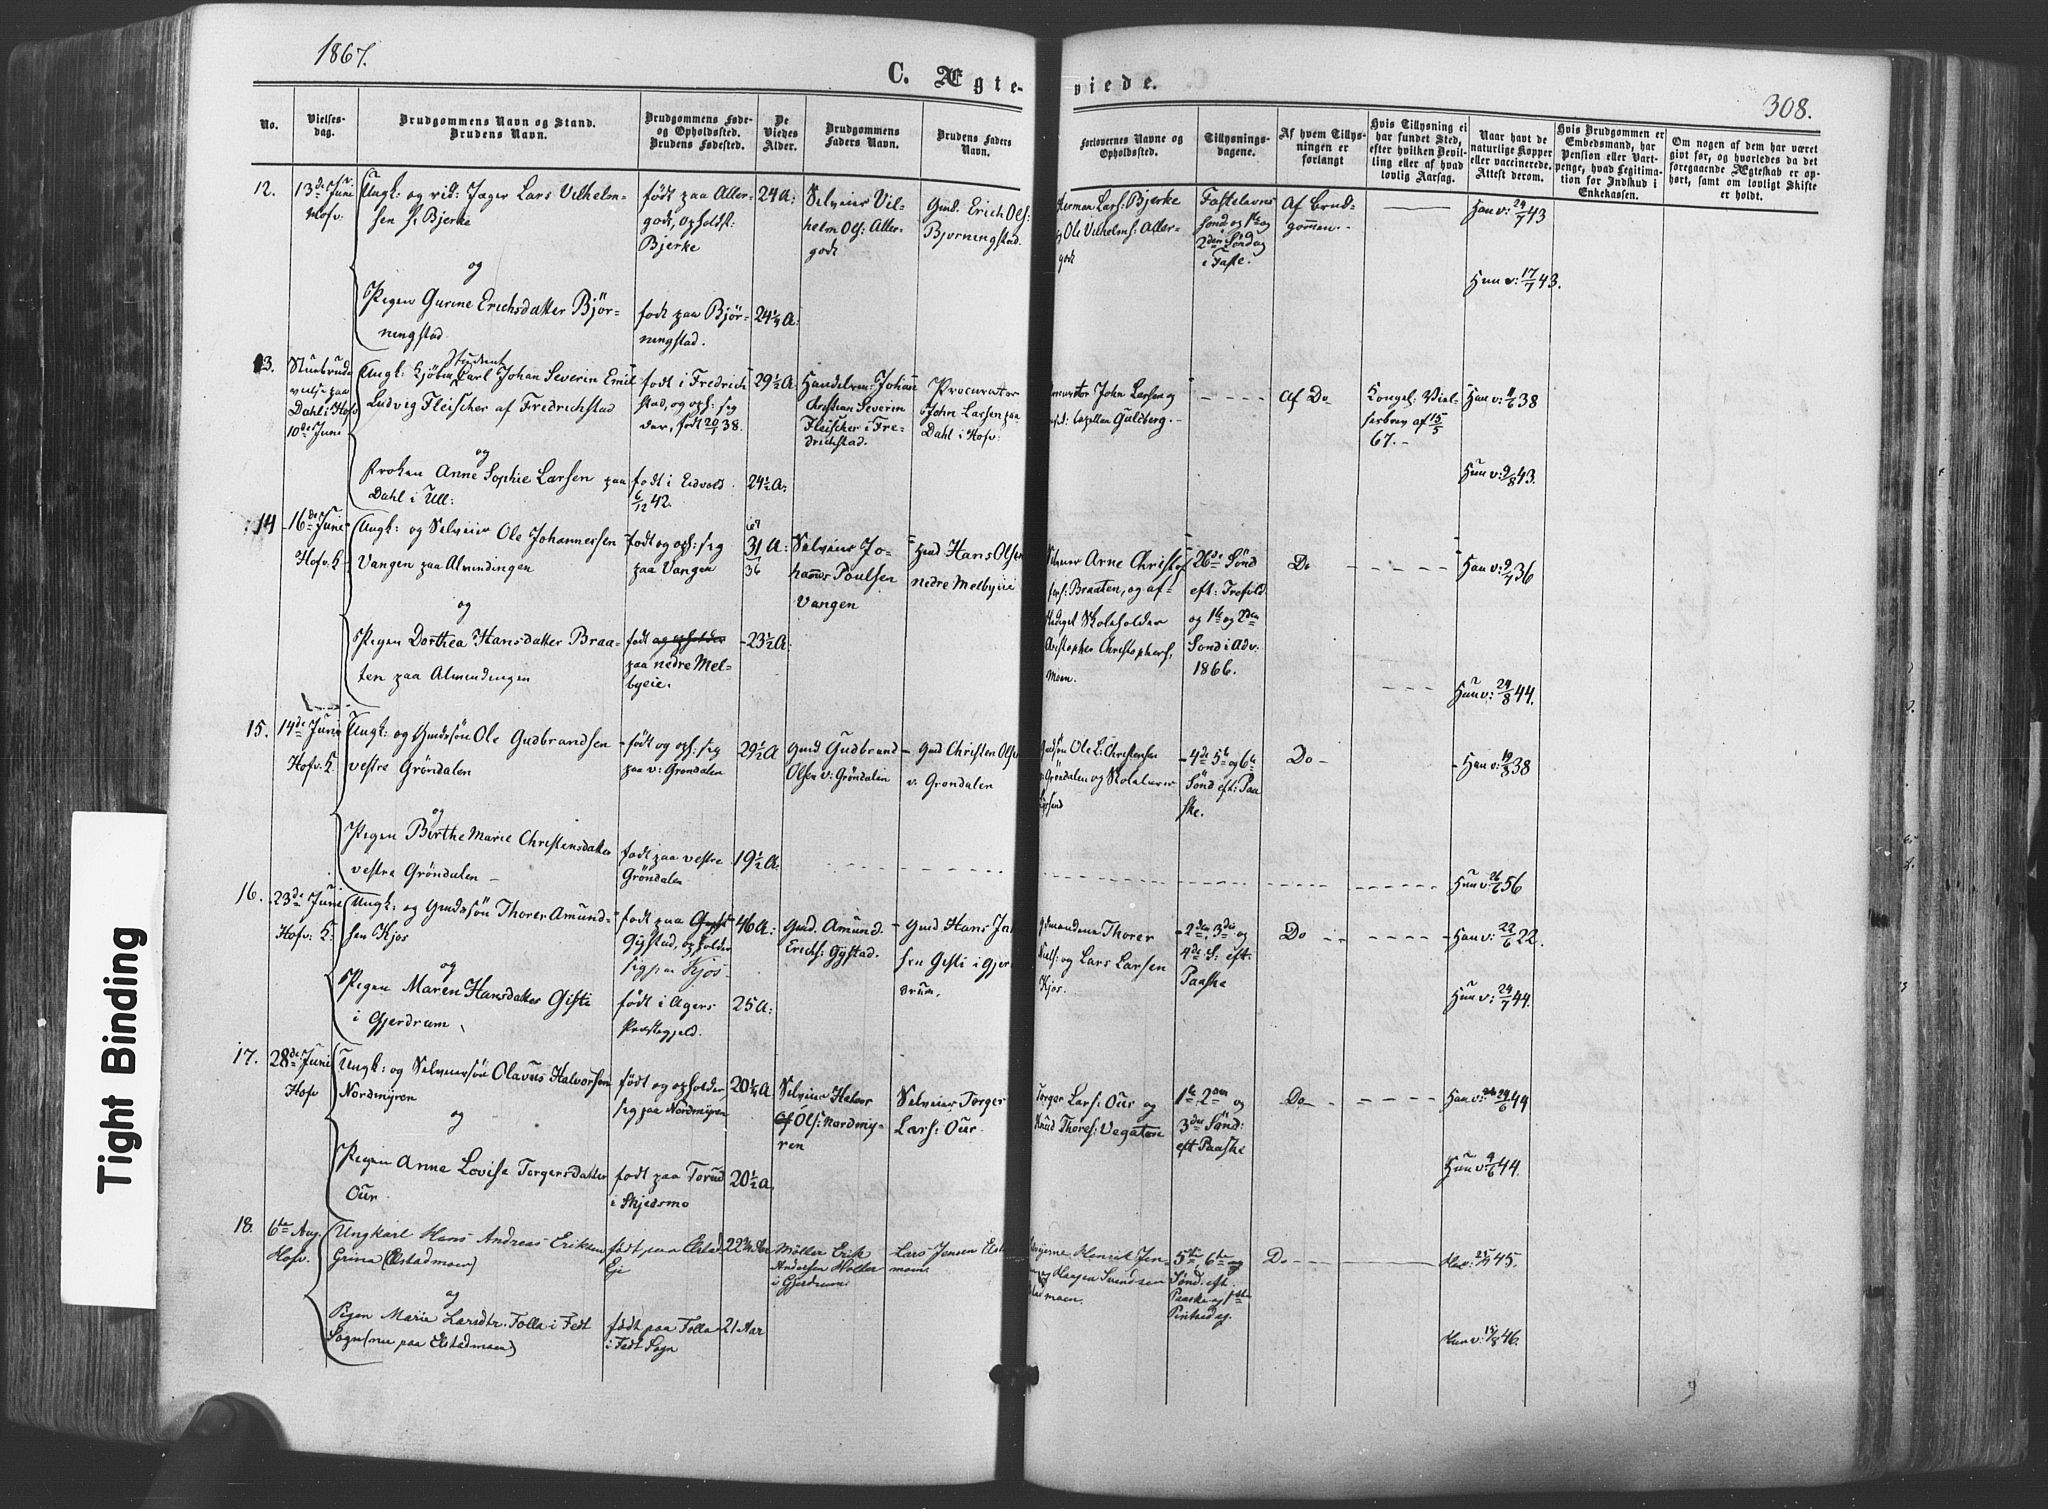 1867.
C. Ægteviede.
308.
No.
Vielsesdag.
Brudgommens Navn og Stand.
Brudens Navn.
Brudgommens Føde-
og Opholdssted.
Brudens Fødested.
De
Viedes
Alder.
Brudgommens
Faders Navn.
Brudens Faders
Navn.
Forlovernes Navne og
Opholdssted.
Tillysnings-
dagene.
Af hvem Tillys-
ningen er
forlangt
Hvis Tillysning ei
har fundet Sted,
efter hvilken Bevil-
ling eller af hvad
lovlig Aarsag.
Naar havt de
naturlige Kopper
eller vaccinerede.
Attest derom.
Hvis Brudgommen er
Embedsmand, har
Pension eller Vart-
penge, hvad Legitima-
tion for Indskud i
Enkekassen.
Om nogen af dem har været
gift før, og hvorledes da det
foregaaende Ægteskab er op-
hørt, samt om lovligt Skifte
er holdt.
12.
13de Juni
Hofv.
Ungk: og rid: Jæger Lars Vilhelm-
sen Bjerke
og
Pigen Gurine Erichsdatter Bjør-
ningstad
født paa Aller-
godt, opholdt:
Bjerke
født paa Bjør-
ningstad.
24 A:
24¼ A:
Selveier Vil-
helm Ols: Aller-
godt
Gmd. Erich Ols:
Bjørningstad.
Herman Lars: Bjerke
og Ole Vilhelms: Aller-
godt
Fastelavns
Sønd: og 1te og
2den Søndag
i Faste.
Af Brud-
gommen.
Han v: 29/7 43
Hun v: 17/7 43.
13.
Stuebrude
vielse paa
Dahl i Hofv
10de Juni
Student
Ungk: Kjøbm. Carl Johan Severin Emil
Ludvig Fleischer af Fredrichstad
og
Frøken Anne Sophie Larsen paa
Dahl i Ull:
født i Fredrich
stad, og oph: sig
der, født 20/1 38.
født i Eidvold
6/12 42.
29½ A:
24½ A:
Handelsm: Johan
Christian Severin
Fleischer i Fre-
drichstad.
Procurator
John Larsen paa
Dahl i Hofv:
John Larsen og
Capellan Guldberg.
Af Do
Kongel: Viel-
sesbrev af 15/5
67.
Han v: 38
Hun v: 9/8 43.
14
16de Juni
Hofv. K.
Ungk: og Selveier Ole Johannessen
Vangen paa Almindingen
og
Pigen Dorthea Hansdatter Braa-
ten paa Almindingen
født og oph: sig
paa Vangen
født og opholder
paa nedre Mel-
byeie.
67
31 A:
36
23½ A:
Selveier Jo-
hannes Poulsen
Vangen
Gmd Hans Olsen
nedre Melbyeie
Selveier Arne Christof
fers: Braaten, og af-
skediget Skoleholder
Christopher Christophers:
Moen.
26de Sønd
eft: Trefold.
og 1te og 2den
Sønd i Adv.
1866.
Do
Han v: 9/7 36
Hun v: 29/8 44.
15.
14de Juni
Hofv. K.
Ungk: og Gmdssøn Ole Gudbrandsen
vestre Grøndalen
og
Pigen Birthe Marie Christensdatter
vestre Grøndalen
født og oph: sig
paa v: Grøndalen
født paa vestre
Grøndalen
29½ A
19½ A:
Gmd Gudbrand
Olsen v: Grøndalen
Gmd Christen Olsen
v. Grøndalen
Gmdsøn Ole L. Christensen
v: Grøndalen og Skolelærer
4de 5te og 6te
Sønd eft: Paa
ske.
Do
Han v: 19/8 38
Hun v: 26/6 56
16.
23de Juni
Hofv: K:
Ungk: og Gmdssøn Thorer Amund-
sen Kjos
og
Pigen Maren Hansdatter Gisti
i Gjerdrum
født paa
Gystad, opholder
sig paa Kjos
født i Agers
Præstegjeld.
46 A:
25 A:
Gmd. Amund
Erichs: Gystad.
Gmd Hans Jen
sen Gisti i Gjer
drum.
Gdmændene Thorer
Niels: og Lars Larsen
Kjos.
2den 3die og
4de S: eft.
Paaske
Do
Han v: 22/6 22.
Hun v: 29/7 44.
17.
28de Juni
Hofv
Ungk: og Selveiersøn Olavus Halvorsen
Nordmyren
og
Pigen Anne Lovise Torgersdatter
Our
født og opholder
sig paa Nordmyren
født paa Torud
i Skjedsmo
20¼ A
20½ A.
Selveier Halvor
Ols: Nordmy-
ren
Selveier Torger
Lars: Our.
Torger Lars: Our og
Knud Thores: Vegaten
1te 2den og
3die Sønd:
eft Paaske
Do
Han v: 29/6 44
Hun v: 9/6 44.
18.
6te Aug.
Hofv.
Ungkarl Hans Andreas Eriksen
Grina (Elstadmoen)
og
Pigen Marie Larsdtr. Tolla i Fedt
Sogn (nu paa Elstadmoen)
født paa Elstad
Eje
født paa Tolla
i Fedt Sogn
22¾ Aar
21 Aar
Møller Erik
Andersen Møller
i Gjerdrum
Lars Jensen Elst
moen
Henrik Jen-
sen og Haagen Svendsen
Elstadmoen.
5te, 6te og
Sønd: eft.
Paaske og 1ste
Pintsedag.
Do
Han v: 25/ 45.
Hun v: 15/8 46.
Tight Binding